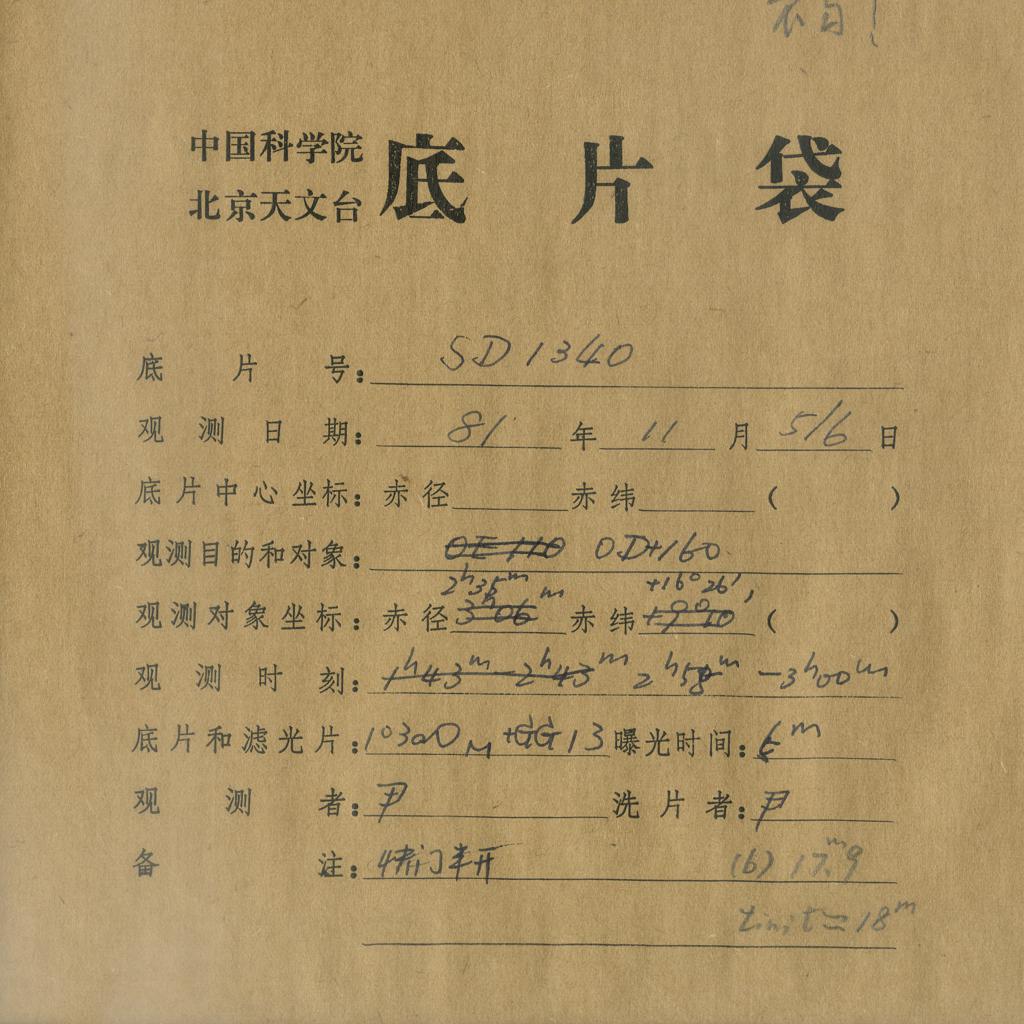 不自!
中国科学院
北京天文台
底片袋
底片号: SD1340
观测日期: 81年11月5/6日
底片中心坐标: 赤径 赤纬 ( )
观测目的和对象: OE110 OD+160
2h35m +16°26',
观测对象坐标: 赤径3h06m 赤纬+9°10 ( )
观测时刻: 1h43m-2h43m 2h58m-3h00m
底片和滤光片: 103aO M+GG13 曝光时间: m
观测者: 尹 洗片者: 尹
备注: 快门半开 (6) 17m.9
Limit=18m